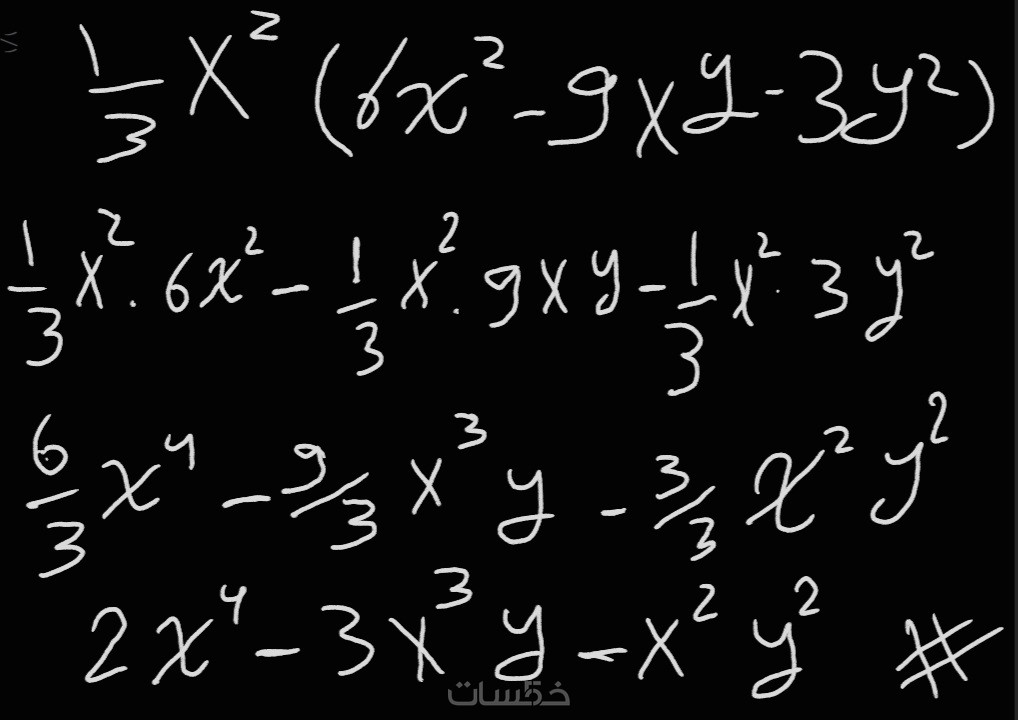 1/3 x² (6x² - 9xy - 3y²)
1/3 x² . 6x² - 1/3 x² . 9xy - 1/3 x² . 3y²
6/3 x⁴ - 9/3 x³y - 3/3 x²y²
2x⁴ - 3x³y - x²y² #
خمسات